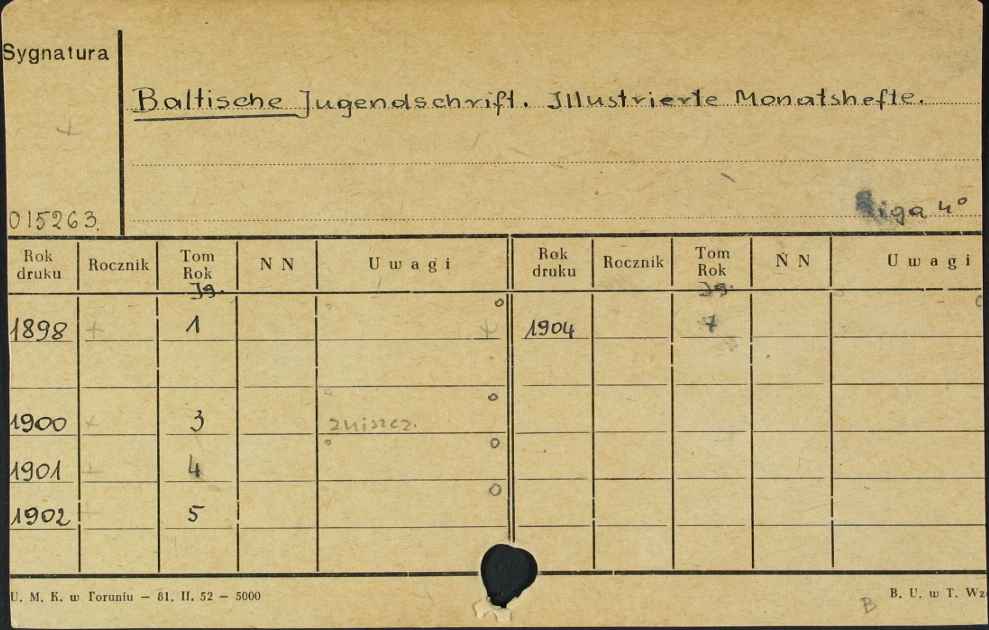 Sygnatura
Baltische Jugendschrift. Illustrierte Monatshefte.
015263.
Riga 4°
Rok druku Rocznik Tom Rok N N Uwagi Rok druku Rocznik Tom Rok N N Uwagi
Jg. Jg.
1898 + 1 + 1904 7
1900 + 3 zniszcz.
1901 + 4
1902 + 5
U. M. K. w Toruniu — 81. II. 52 — 5000
B. U. w T. Wz
B